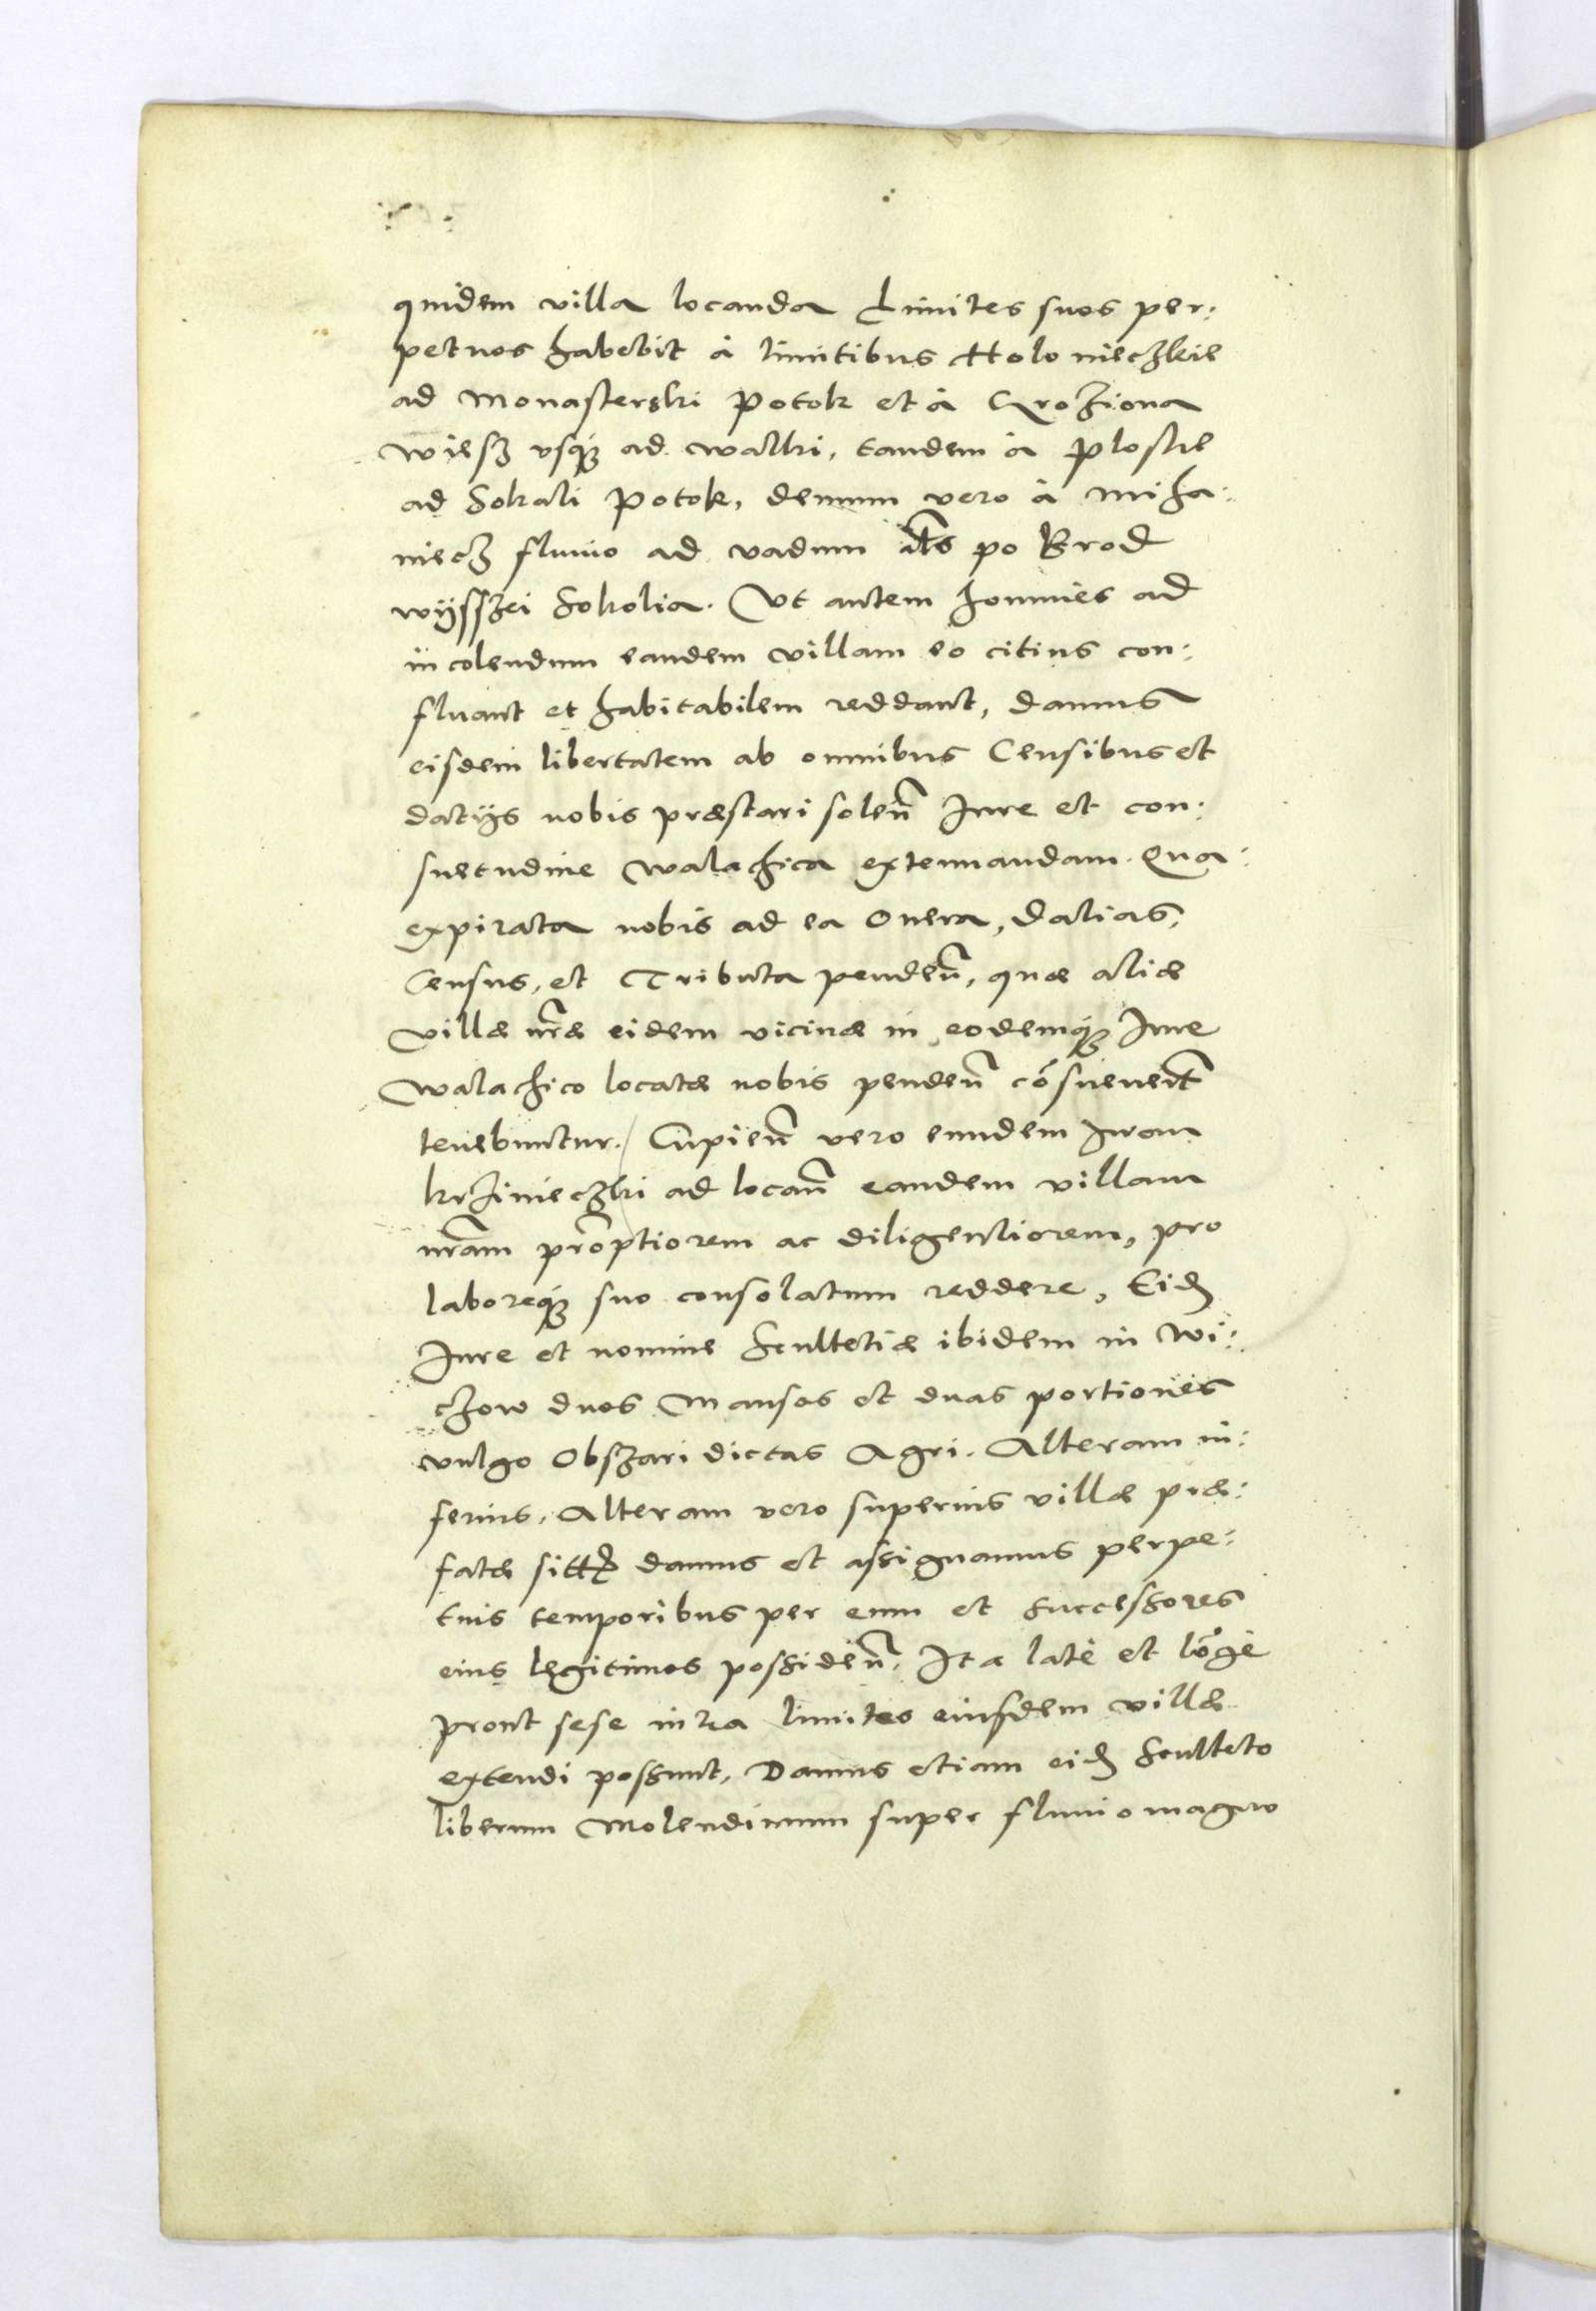 quidem villa locanda Limites suos per:
petuos habebit à limitibus Holonieczkie
ad Monasterski Potok et à Groziona
wiesz usq3 ad walki, tandem à Ploskie
ad Sokali Potok, demum vero à Miha:
niecz fluvio ad vadum als po Brod
wijsszei Sokolia. Ut autem homines ad
incolendum eandem villam eo citius con:
fluant et habitabilem reddant, damus
eisdem libertatem ab omnibus Censibus et
datijs nobis præstari soleñ Iure et con:
suetudine Walachica extenuandam. Qua
expirata nobis ad ea Onera, Datias,
Census, et Tributa pendeñ, quæ aliæ
villæ nr̃æ eidem vicinæ in eodemq3 Iure
Walachico locatæ nobis pendeñ cõsueuert̃
tenebuntur. Cupieñ vero eundem Iwan
krzinieczki ad locañ eandem villam
nr̃am prõptiorem ac diligentiorem, pro
laboreq3 suo consolatum reddere, Eid
Iure et nomine Scultetiæ ibidem in Wi:
czow duos Mansos et duas portiones
vulgo Obszari dictas Agri. Alteram in:
ferius, Alteram vero superius villæ præ:
fatæ damus et assignamus perpe:
tuis temporibus per eum et successores
eius legitimos possideñ. Ita latè et lõgè
prout sese intra limites eiusdem villæ
extendi possunt, Damus etiam eid Sculteto
liberum Molendinum super fluvio magno